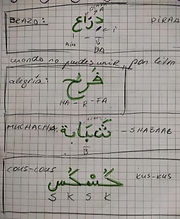 BRAZO: ذِرَاع DIRAA
Ain
DA
cuando no puedes unir, por letra
alegría: فَرَح
HA - R - FA
MUCHACHA شَبَابَة - SHABAAB
B
COUS-COUS كُسْكُس KUS-KUS
S K S K